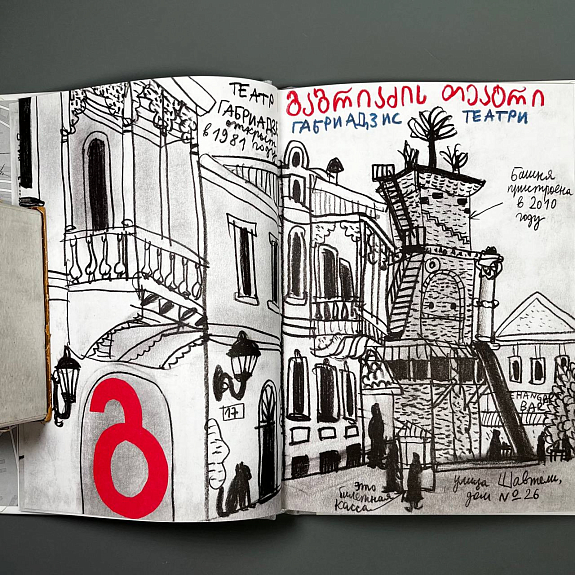 ТЕАТР
ГАБРИАДЗЕ
открыт
в 1981 году
გაბრიაძის თეატრი
ГАБРИАДЗИС ТЕАТРИ
башня
пристроена
в 2010
году
17
HANGAR
BAR
это
билетная
касса
улица Шавтели,
дом № 26